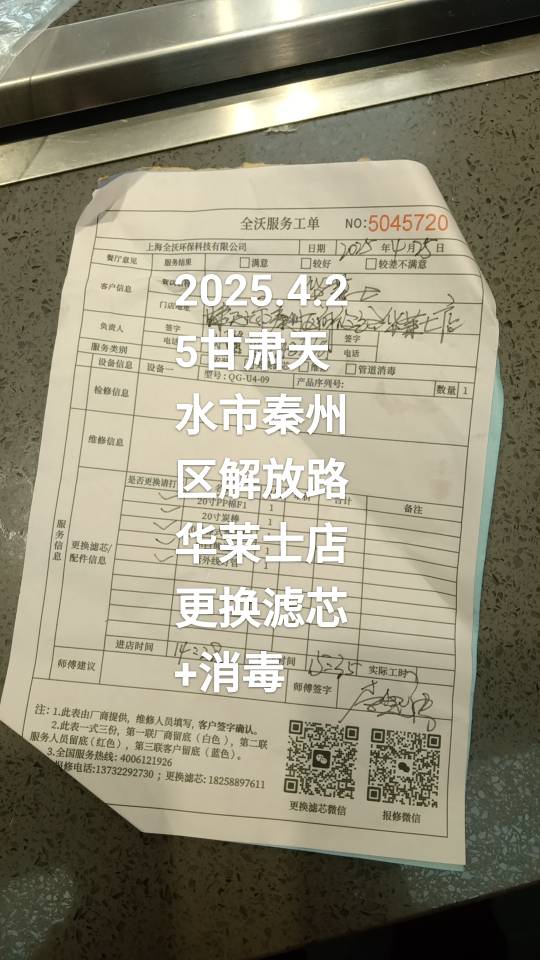 全沃服务工单 NO:5045720
上海全沃环保科技有限公司 日期 2025 年 4 月 25 日
餐厅意见 服务结果 满意 较好 较差不满意
客户信息
门店地址
负责人 签字 签字
电话 电话
服务类别 管道消毒
设备信息 设备一 型号: QG-U4-09 产品序列号: 数量 1
检修信息
维修信息
服务信息
更换滤芯/配件信息
是否更换请打 合计 备注
20寸PP棉F1 1
20寸炭棒 1
1
1
外线灯管 1
进店时间 14:28 时间 15:25 实际工时
师傅建议 师傅签字
注: 1.此表由厂商提供, 维修人员填写, 客户签字确认。
2.此表一式三份, 第一联厂商留底 (白色), 第二联
服务人员留底 (红色), 第三联客户留底 (蓝色)。
3.全国服务热线: 4006121926
报修电话:13732292730 ; 更换滤芯: 18258897611
更换滤芯微信 报修微信
2025.4.2
5甘肃天
水市秦州
区解放路
华莱士店
更换滤芯
+消毒